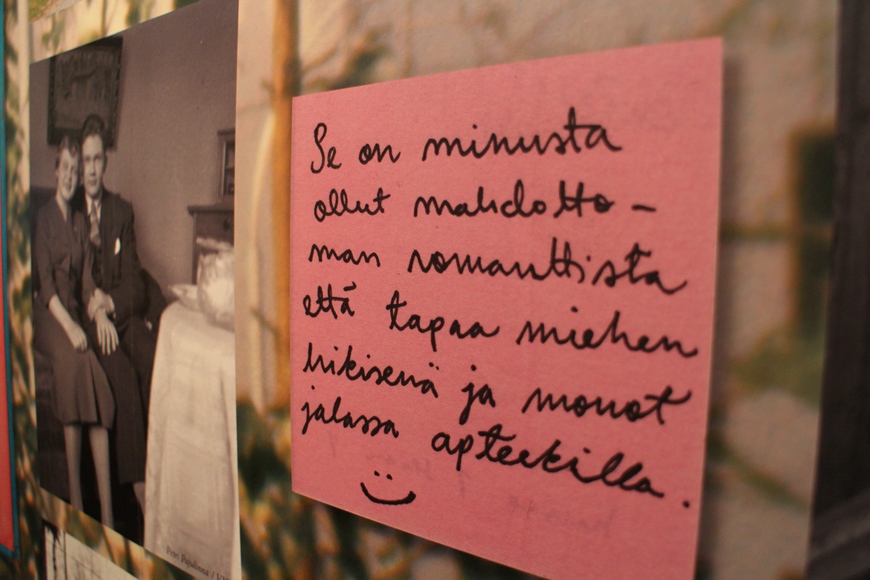 Se on minusta
ollut mahdotto-
man romanttista
että tapaa miehen
hikisenä ja monot
jalassa apteekilla.